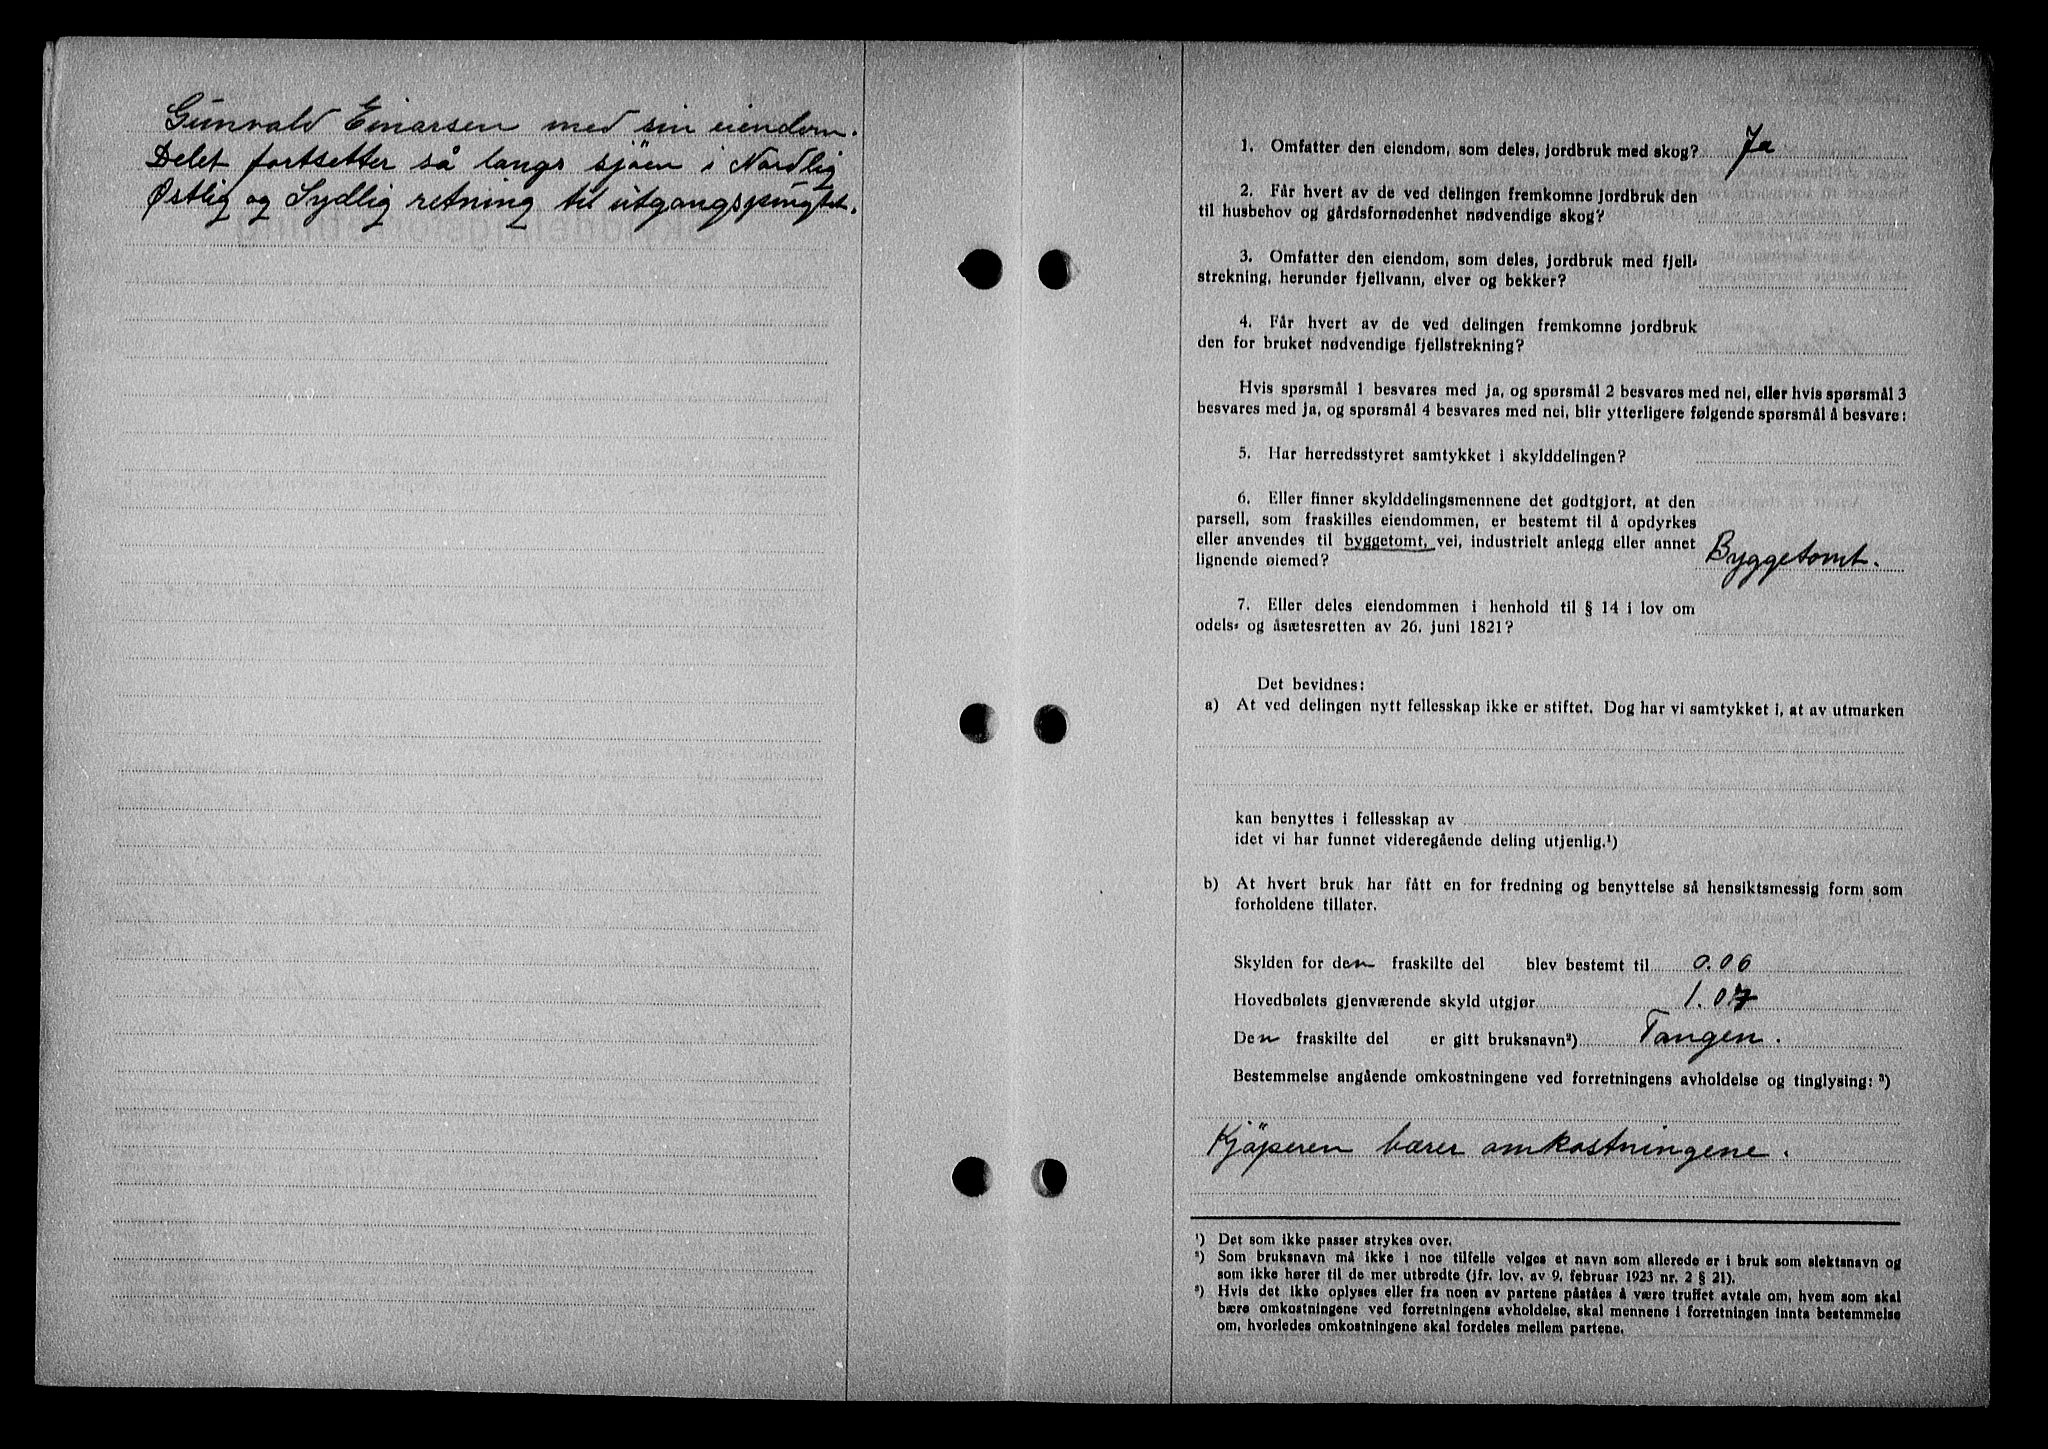 Gunvald Einarsen med sin eiendom.
Delet fortsetter så langs sjöen i Nordlig
Østlig og Sydlig retning til utgangspungtet.
1. Omfatter den eiendom, som deles, jordbruk med skog? Ja
2. Får hvert av de ved delingen fremkomne jordbruk den
til husbehov og gårdsfornødenhet nødvendige skog?
3. Omfatter den eiendom, som deles, jordbruk med fjell-
strekning, herunder fjellvann, elver og bekker?
4. Får hvert av de ved delingen fremkomne jordbruk
den for bruket nødvendige fjellstrekning?
Hvis spørsmål 1 besvares med ja, og spørsmål 2 besvares med nei, eller hvis spørsmål 3
besvares med ja, og spørsmål 4 besvares med nei, blir ytterligere følgende spørsmål å besvare:
5. Har herredsstyret samtykket i skylddelingen?
6. Eller finner skylddelingsmennene det godtgjort, at den
parsell, som fraskilles eiendommen, er bestemt til å opdyrkes
eller anvendes til byggetomt, vei, industrielt anlegg eller annet
lignende øiemed? Byggetomt.
7. Eller deles eiendommen i henhold til § 14 i lov om
odels- og åsætesretten av 26. juni 1821?
Det bevidnes:
a) At ved delingen nytt fellesskap ikke er stiftet. Dog har vi samtykket i, at av utmarken
kan benyttes i fellesskap av
idet vi har funnet videregående deling utjenlig.¹)
b) At hvert bruk har fått en for fredning og benyttelse så hensiktsmessig form som
forholdene tillater.
Skylden for den fraskilte del blev bestemt til 0.06
Hovedbølets gjenværende skyld utgjør 1.07
Den fraskilte del er gitt bruksnavn²) Tangen.
Bestemmelse angående omkostningene ved forretningens avholdelse og tinglysing: ³)
Kjöperen bærer omkostningene.
¹) Det som ikke passer strykes over.
²) Som bruksnavn må ikke i noe tilfelle velges et navn som allerede er i bruk som slektsnavn og
som ikke hører til de mer utbredte (jfr. lov. av 9. februar 1923 nr. 2 § 21).
³) Hvis det ikke oplyses eller fra noen av partene påståes å være truffet avtale om, hvem som skal
bære omkostningene ved forretningens avholdelse, skal mennene i forretningen innta bestemmelse
om, hvorledes omkostningene skal fordeles mellem partene.